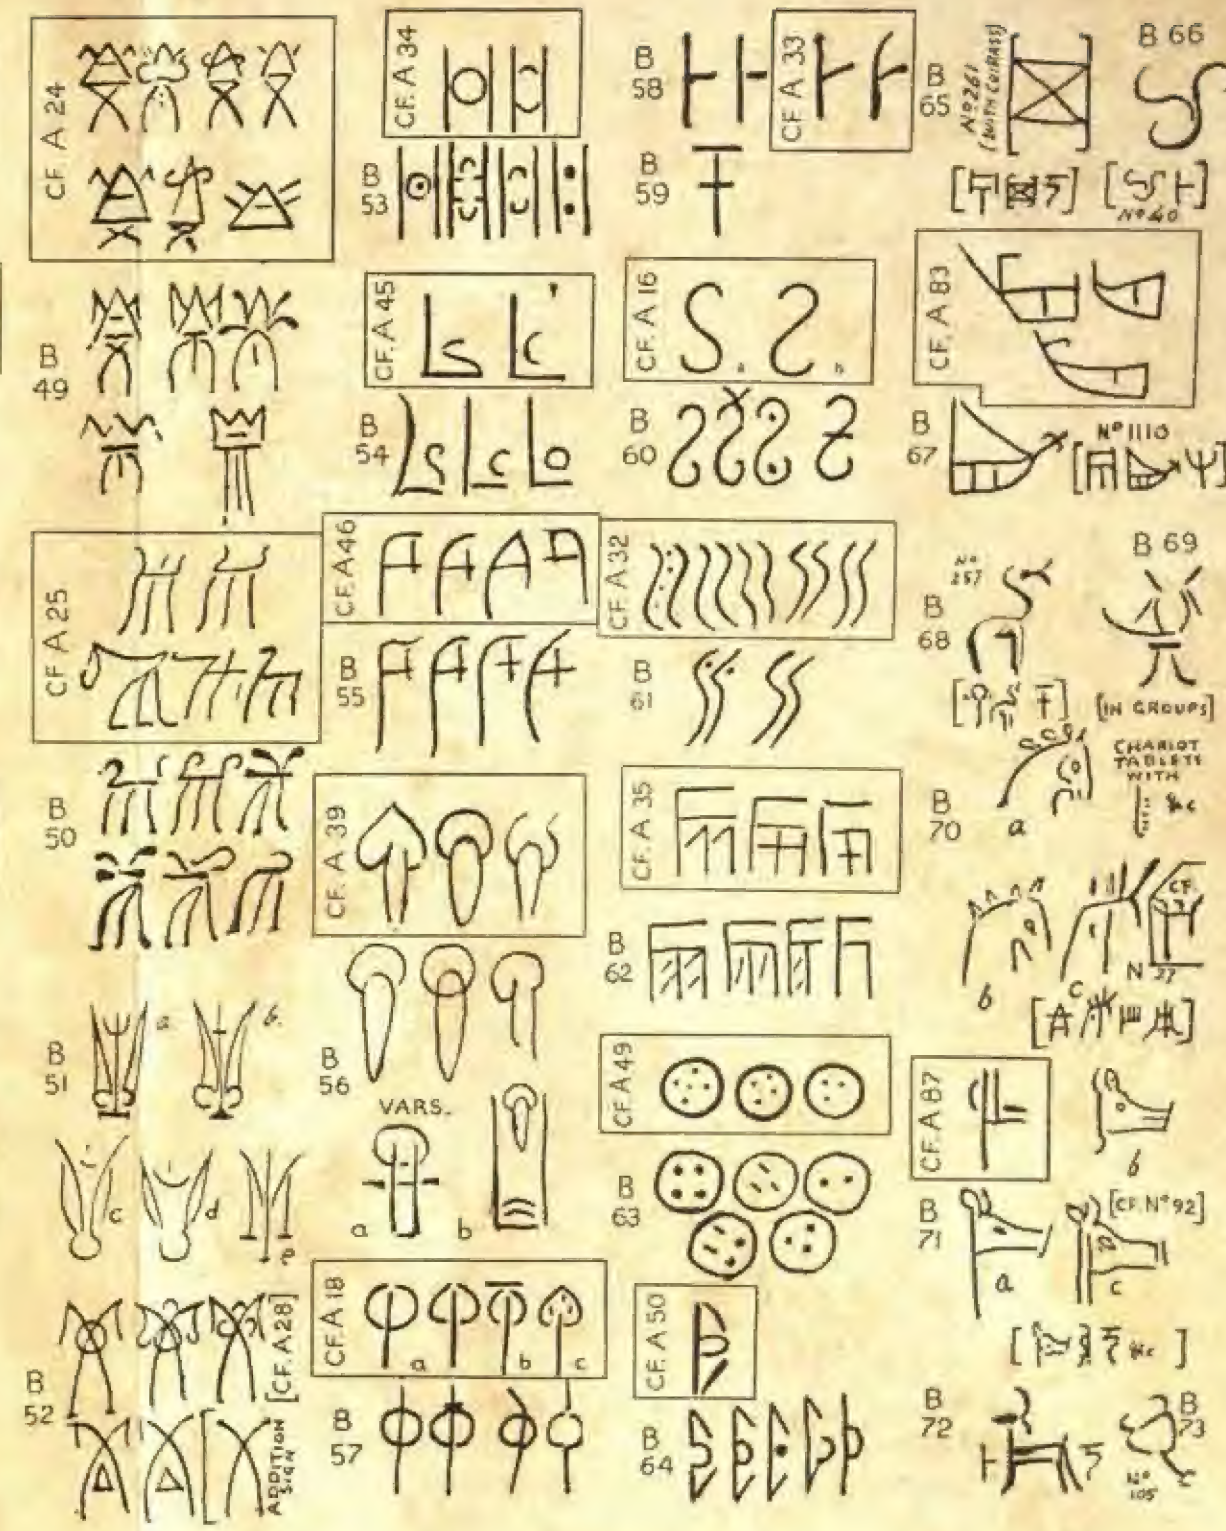 CF. A 24
B 49
CF A 25
B 50
B 51
a
b
c
d
e
B 52
[CF. A 28]
ADDITION SIGN
CF. A 34
B 53
CF. A 45
B 54
CF. A 46
B 55
CF. A 39
B 56
VARS.
a
b
CF. A 18
a
b
c
B 57
B 58
CF. A 33
B 59
CF. A 16
a
b
B 60
CF. A 32
B 61
CF. A 35
B 62
CF. A 49
B 63
CF. A 50
B 64
B 65
Nº 261
(WITH CUIRASS)
B 66
Nº 40
CF. A 83
B 67
Nº 1110
B 68
Nº 257
B 69
[IN GROUPS]
B 70
a
CHARIOT
TABLETS
WITH
&c
b
c
CF.
N 37
CF. A 87
b
B 71
a
[CF. Nº 92]
c
&c
B 72
B 73
Nº 105